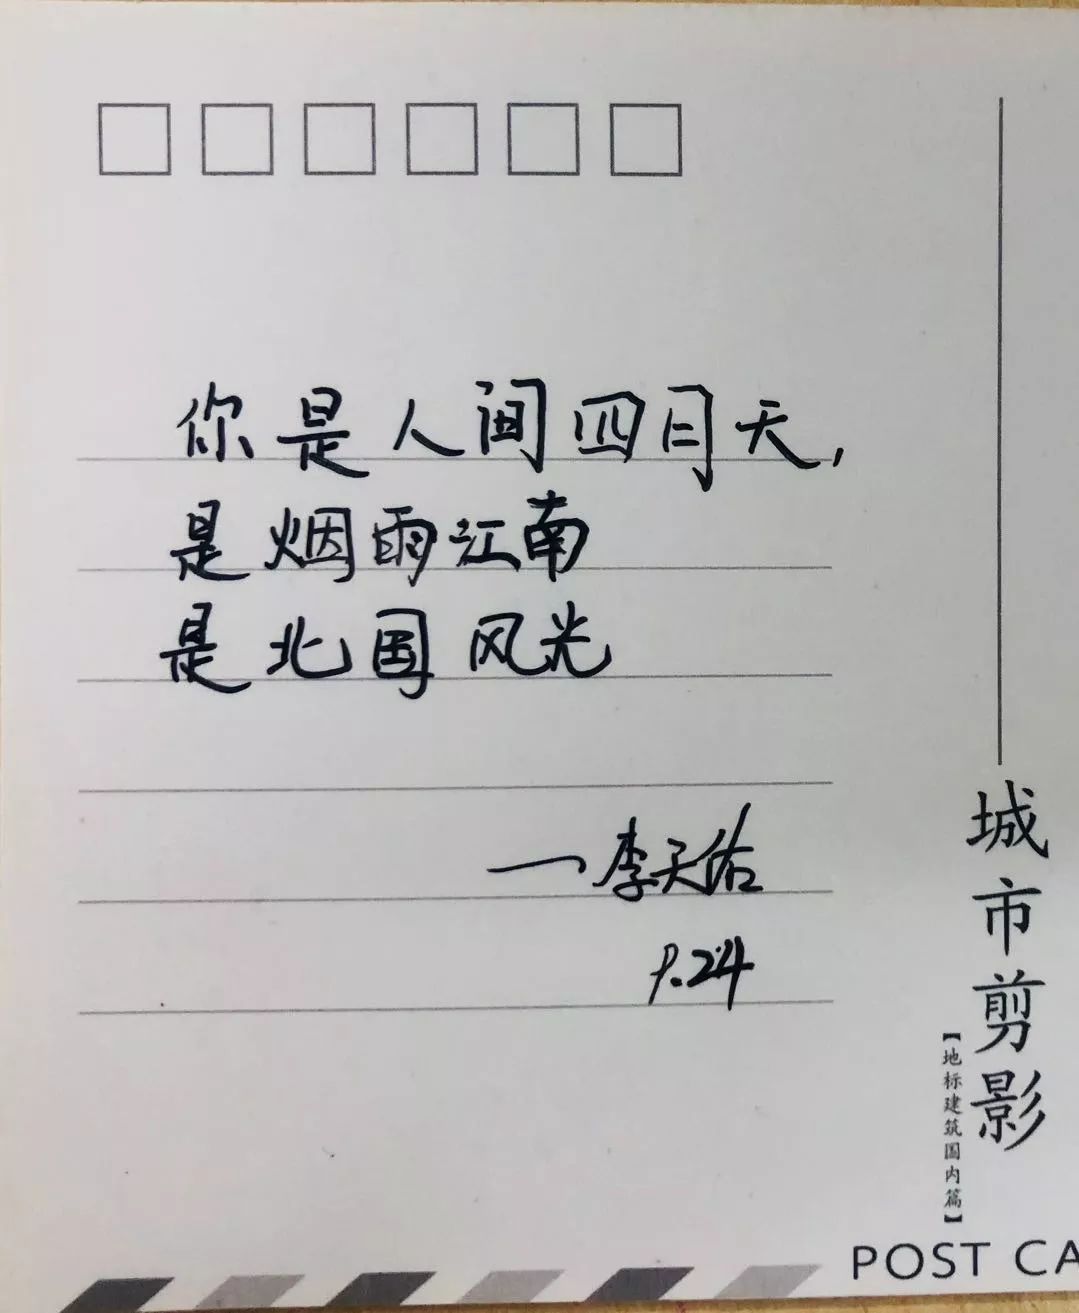 你是人间四月天，
是烟雨江南
是北国风光
一李天佑
9.24
城市剪影
【地标建筑国内篇】
POST CA